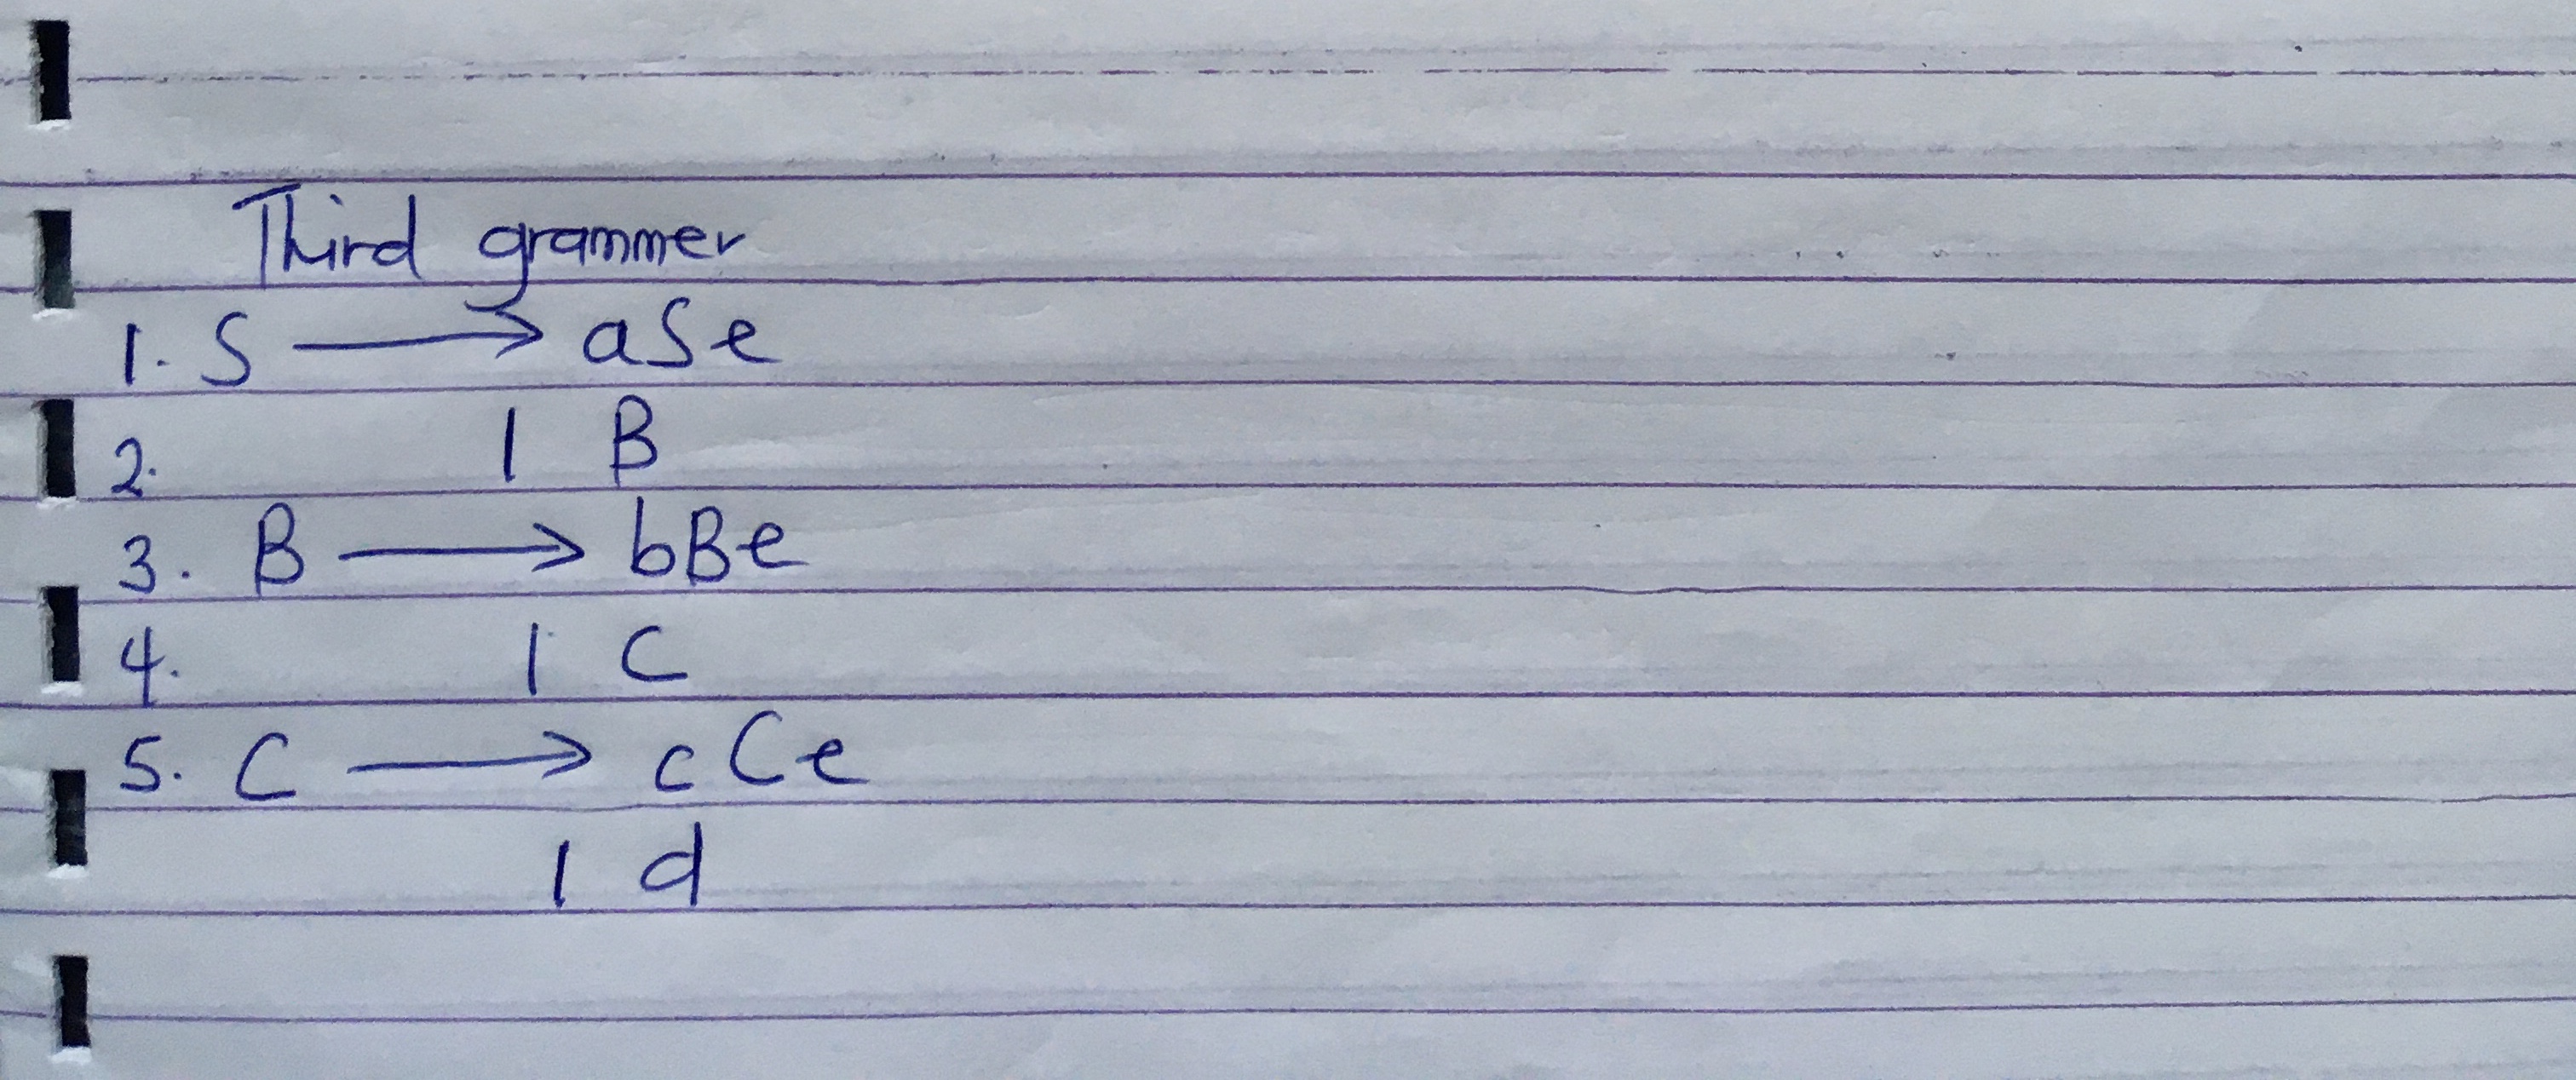 Third grammer
1. S → aSe
2. | B
3. B → bBe
4. | C
5. C → cCe
| d